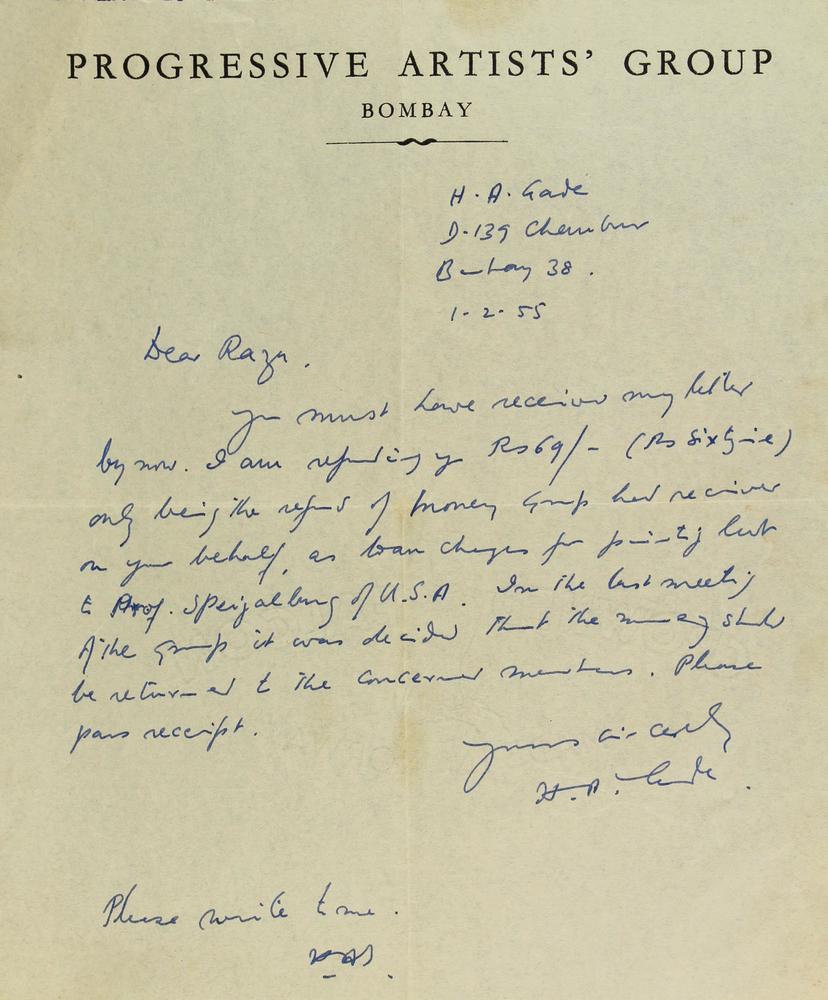 PROGRESSIVE ARTISTS' GROUP
BOMBAY
H. A. Gade
D-139 Chembur
Bombay 38.
1-2-55
Dear Raza.
You must have received my letter
by now. I am refunding you Rs 69/- (Rs Sixty nine)
only being the refund of money Group had received
on your behalf, as loan charges for painting lent
to Prof. Speigalburg of U.S.A. In the last meeting
of the group it was decided that the money should
be returned to the concerned members. Please
pass receipt.
Yours sincerely
H. A. Gade.
Please write to me.